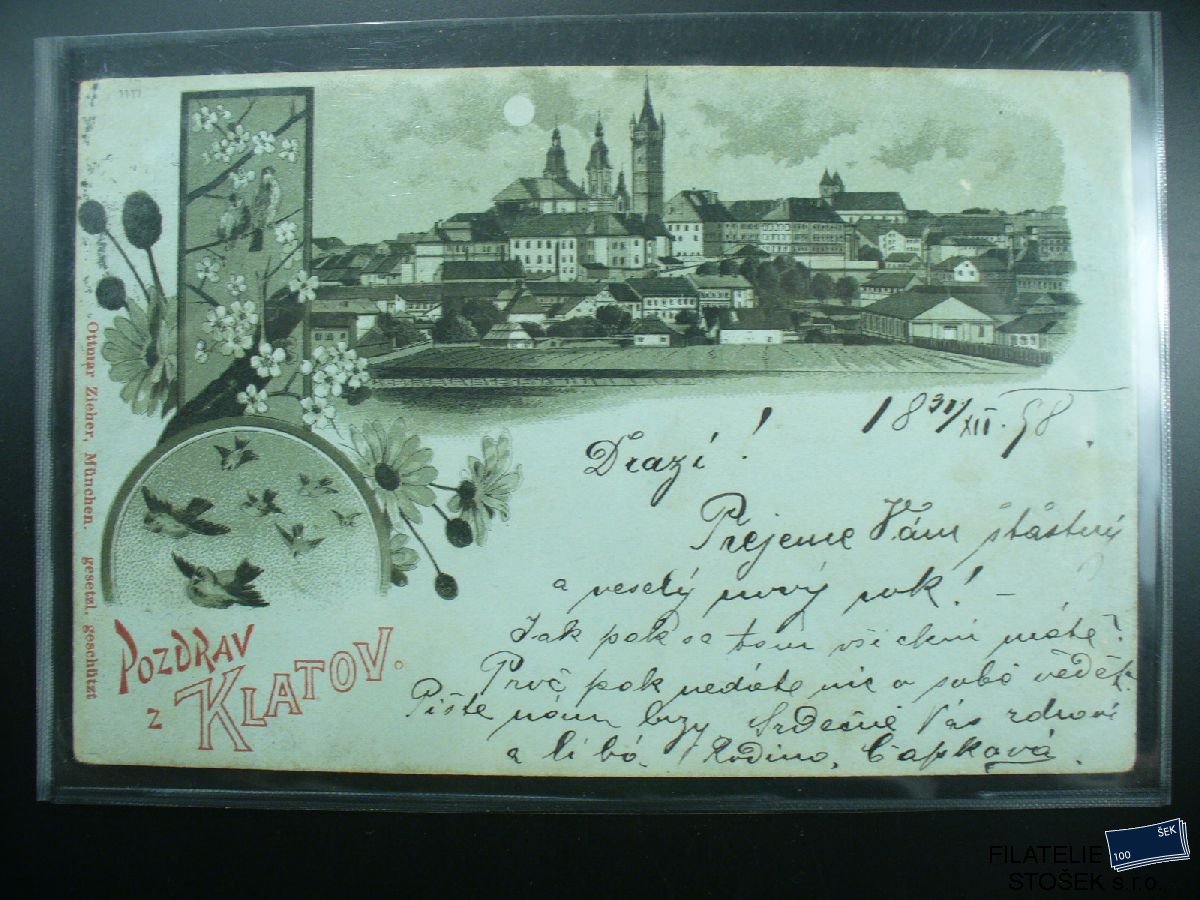 1111
Ottmar Zieher, München. gesetzl. geschützt
18 31/XII. 98.
Drazí!
Přejeme Vám štástný
a veselý nový rok! –
Jak pak se tam všickni máte?
Proč pak nedáte nic o sobě vědět.
Pište nám brzy Srdečně Vás zdraví
a líbá. Rodina, Čapková.
POZDRAV
z KLATOV.
ŠEK
100
FILATELIE
STOŠEK s.r.o.